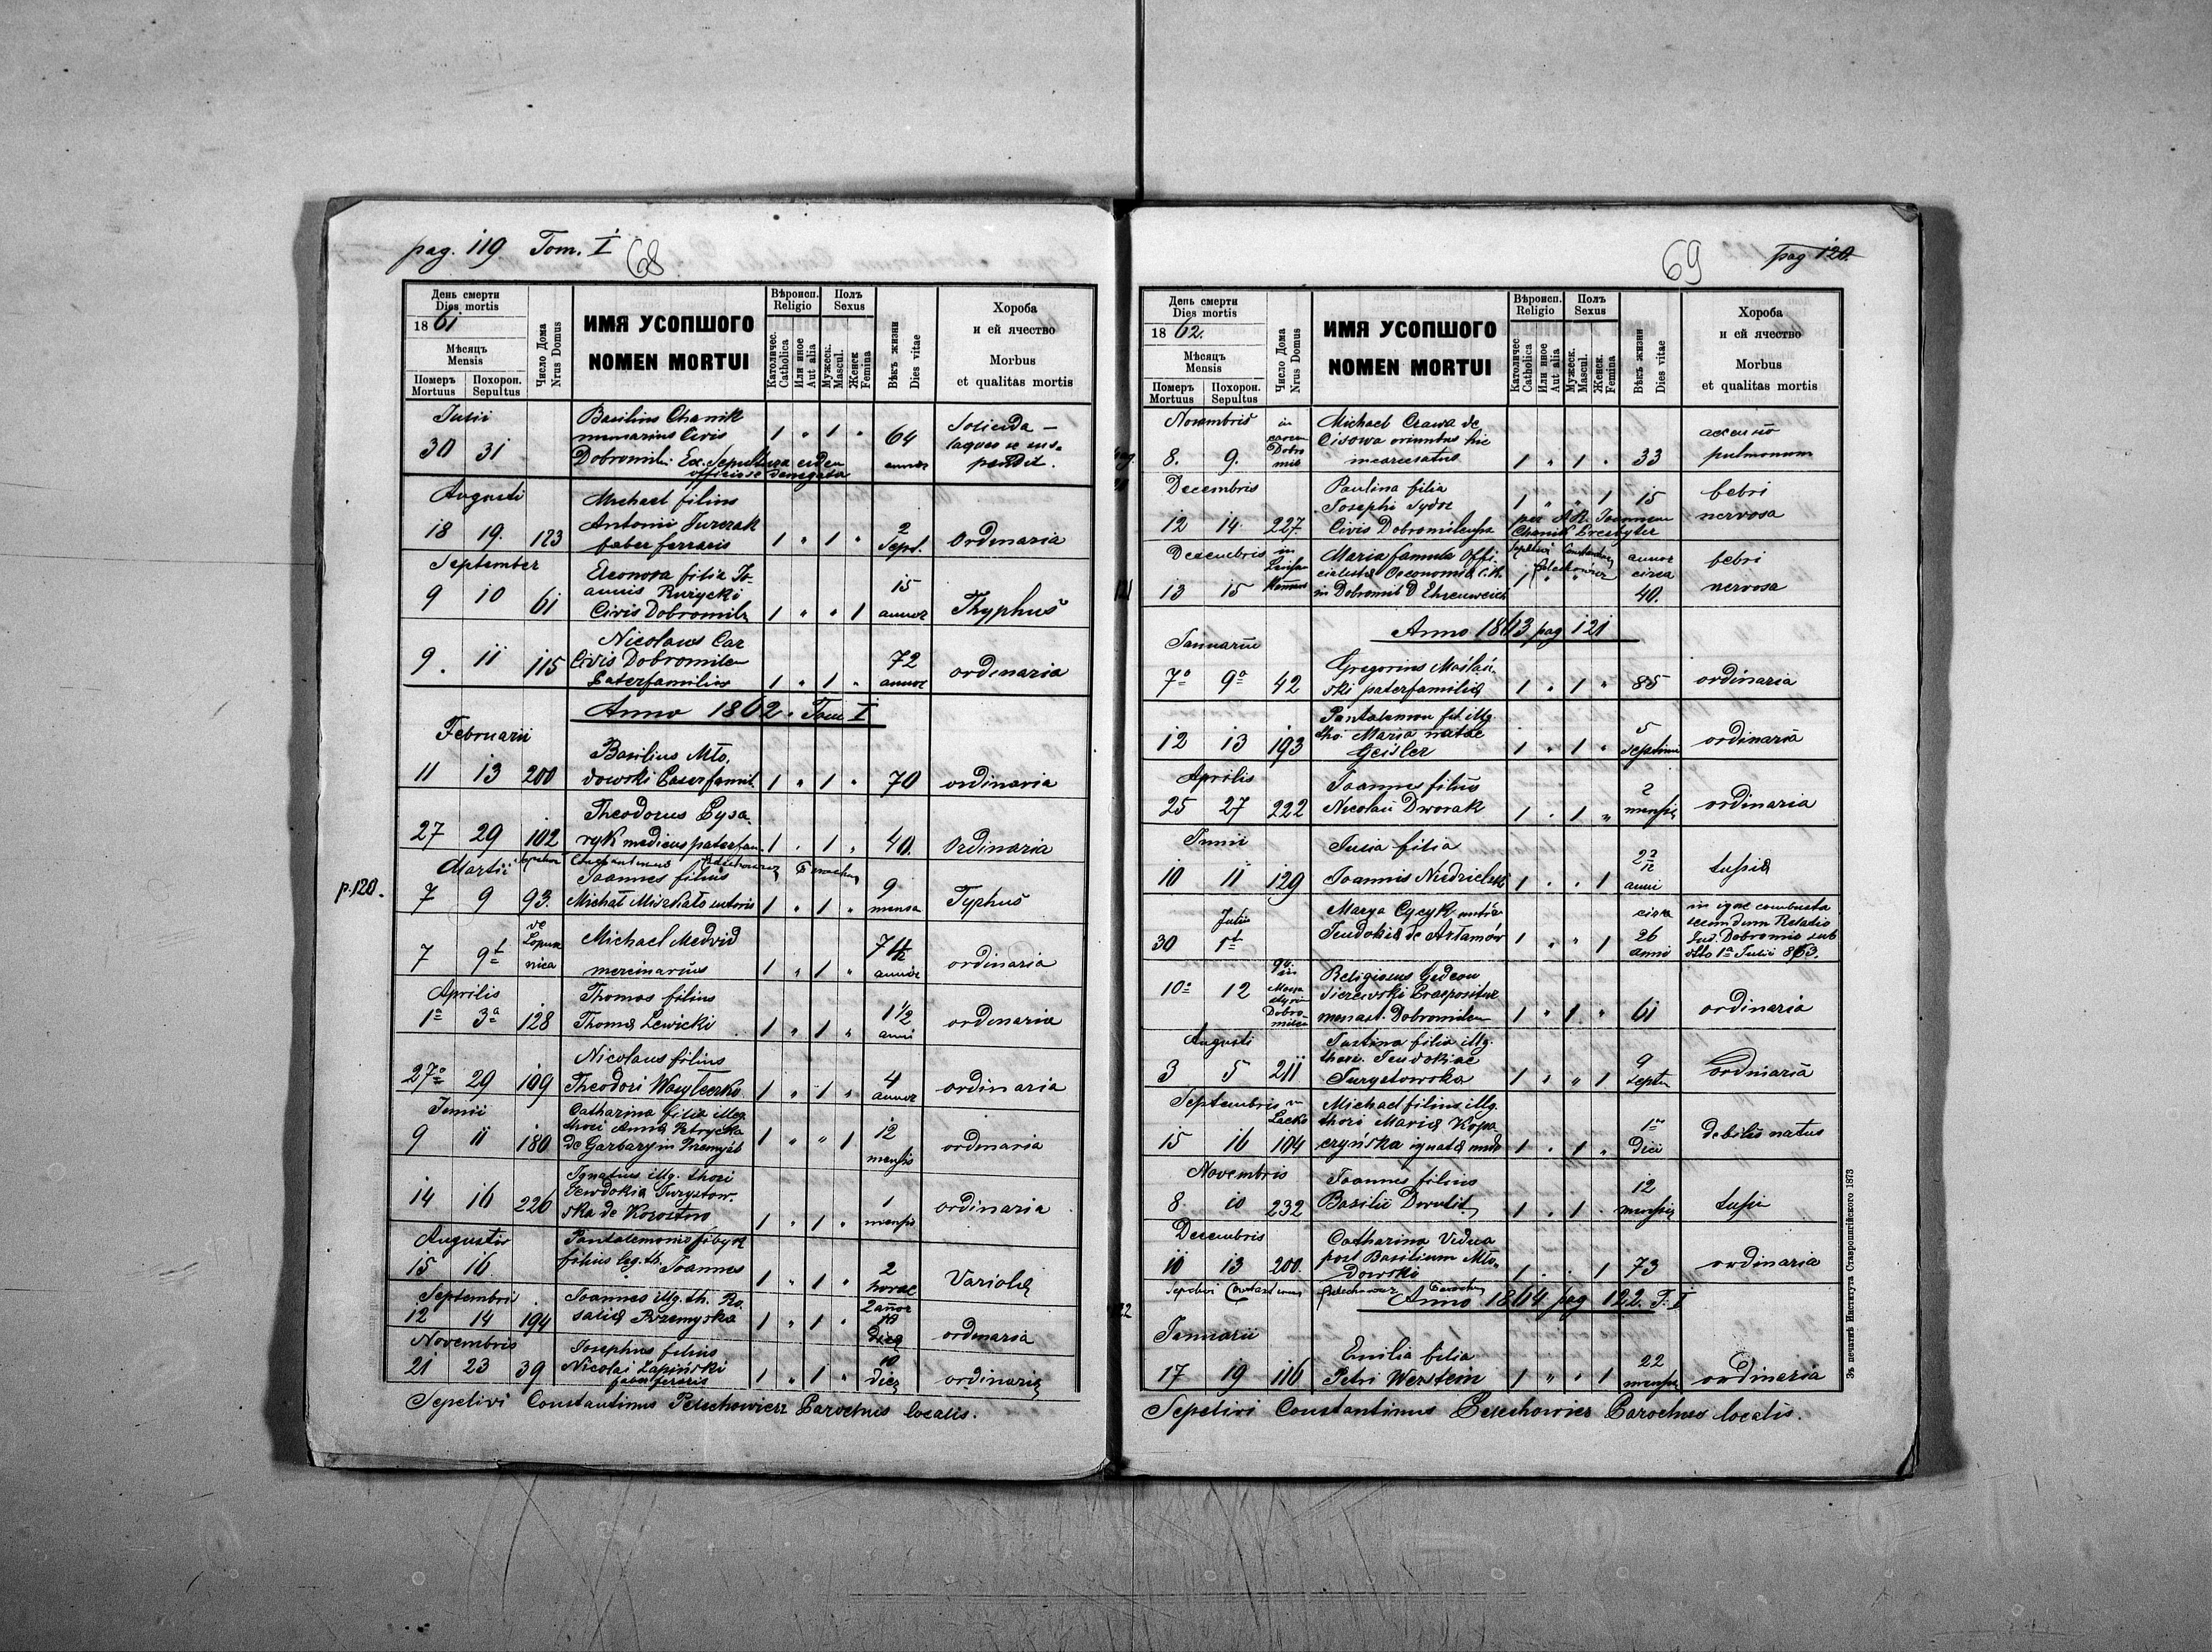 pag. 119 Tom. I
68
День смерти
Dies mortis
1861
Мѣсяцъ
Mensis
Померъ
Mortuus
Похорон.
Sepultus
Число Дома
Nrus Domus
ИМЯ УСОПШОГО
NOMEN MORTUI
Вѣроисп.
Religio
Католичес.
Catholica
Или иное
Aut alia
Полъ
Sexus
Мужеск.
Mascul.
Женск
Femina
Вѣкъ жизни
Dies vitae
Хороба
и ей ячество
Morbus
et qualitas mortis
Julii
30 31
Basilius Chanik
Civis
Dobromil. Ex. Sepultura eidem
officiose denegata
1 " 1 "
64
annor
laqueo se sus-
pendit.
Augusti
18 19. 123
Michael filius
Antonii Jurczak
faber ferraris
1 " 1 "
2
Sept.
Ordinaria
September
9 10 61
Eleonora filia Jo-
annis Rurycki
Civis Dobromil
1 " " 1
15
annor
Thyphus
9. 11 115
Nicolaus Car
Civis Dobromilen
Paterfamilias
1 " 1 "
72
annor
ordinaria
Anno 1862. Tom I
Februarii
11 13 200
Basilius Mło-
dowski Paterfamil.
1 " 1 "
70
ordinaria
27 29 102
Theodorus Pysa-
ryk medicus paterfam.
1 . 1 .
40.
Ordinaria
Sepelivi Constantinus Pelechowicz Parochus
p. 120.
Martii
7 9 93.
Joannes filius
Michał sutoris
1 " 1 "
9
mensa
Typhus
7 9t
Michael Medvid
mercinarius
1 " 1 "
annor
ordinaria
Aprilis
1a 3a 128
Thomas filius
Thoma Lewicki
1 " 1 "
1 1/2
anni
ordinaria
27a 29 199
Nicolaus filius
Theodori Wasyleczko
1 " 1 "
4
annor
ordinaria
Junii
9 11 180
Catharina filia illeg.
thori Anna Petrycka
de Garbary in Przemyśl
1 " " 1
12
mensis
ordinaria
14 16 226
Ignatius illg. thori
Jewdokia Turystow-
ska de Korostno
1 " 1 "
1
mensis
ordinaria
Augusti
15 16.
filius leg. th. Joannes
1 " 1 "
2
horae
Variola
Septembri
12 14 194
Joannes illg. th. Ro-
salia Przemyska
1 " 1 "
2 annor
10
dies
ordinaria
Novembris
21 23 39
Josephus filius
Nicolai Łapiński
faber feraris
1 " 1 "
10
dies
ordinaria
Sepelivi Constantinus Pelechowicz Parochus localis.
69
pag 120.
День смерти
Dies mortis
1862.
Мѣсяцъ
Mensis
Померъ
Mortuus
Похорон.
Sepultus
Число Дома
Nrus Domus
ИМЯ УСОПШОГО
NOMEN MORTUI
Вѣроисп.
Religio
Католичес
Catholica
Или иное
Aut alia
Полъ
Sexus
Мужеск.
Mascul.
Женск.
Femina
Вѣкъ жизни
Dies vitae
Хороба
и ей ячество
Morbus
et qualitas mortis
Novembris
8. 9.
in
carcer
Dobro
mil
Michael Czawa de
Cisowa oriundus hic
incarcesatus
1 " 1 .
33
pulmonum
Decembris
12 14. 227.
Paulina filia
Josephi Sydor
Civis Dobromilensis
1 " " 1
15
febri
nervosa
per A.R. Joannem
Chanik Presbyter
Decembris
13 15
Maria famula Offi-
cialista Oeconomia C.R.
in Dobromil D Ehrenreich
Sepelivi Constantinus
Pelechowicz
annor
circa
40.
febri
nervosa
Anno 1863 pag 121
Januarii
7a 9a 42
Gregorius Maślań-
ski paterfamilia
1 " 1 "
85
ordinaria
12 13 193
Pantalemon fil. illg.
tho. Maria natae
Geisler
1 " 1 "
5
septima
ordinaria
Aprilis
25 27 222
Joannes filius
Nicolai Dworak
1 . 1 "
2
mensis
ordinaria
Junii
10 11 129
Julia filia
Joannis Niedzielski
1 . . 1
anni
tussis
Julii
30 1t
Marya Cycyk
Teudokia de Artamów
1 " " 1
circa
26
anni
in igne combusta
secundum Relatio
Jud. Dobromil sub
dtto 1a Julii 863.
10a 12
Religiosus Gedeon
Sierzewski Praepositus
monast. Dobromilen
1 " 1 "
61
ordinaria
Augusti
3 5 211
Justina filia illg.
thori. Teudokiae
Turystowska
1 . " 1
9
septim
ordinaria
Septembris
15 16 104
in
Lacko
Michael filius illg.
thori Maria Kopa-
czyńska
1 . 1 "
1
diei
debilis natus
Novembris
8 10 232
Joannes filius
Basilii
1 . 1 .
12
mensis
tussi
Decembris
10 13 200.
Catharina Vidua
post Basilium Mło-
dowski
1 . . 1
73
ordinaria
Sepelivi Constantinus Pelechowicz Parochus
Anno 1864 pag 122. T. I
Januarii
17 19 116
Emilia filia
Petri Werstein
1 " " 1
22
mensis
ordinaria
Sepelivi Constantinus Pelechowicz Parochus localis.
Зъ печатнѣ Института Ставропигійского 1873